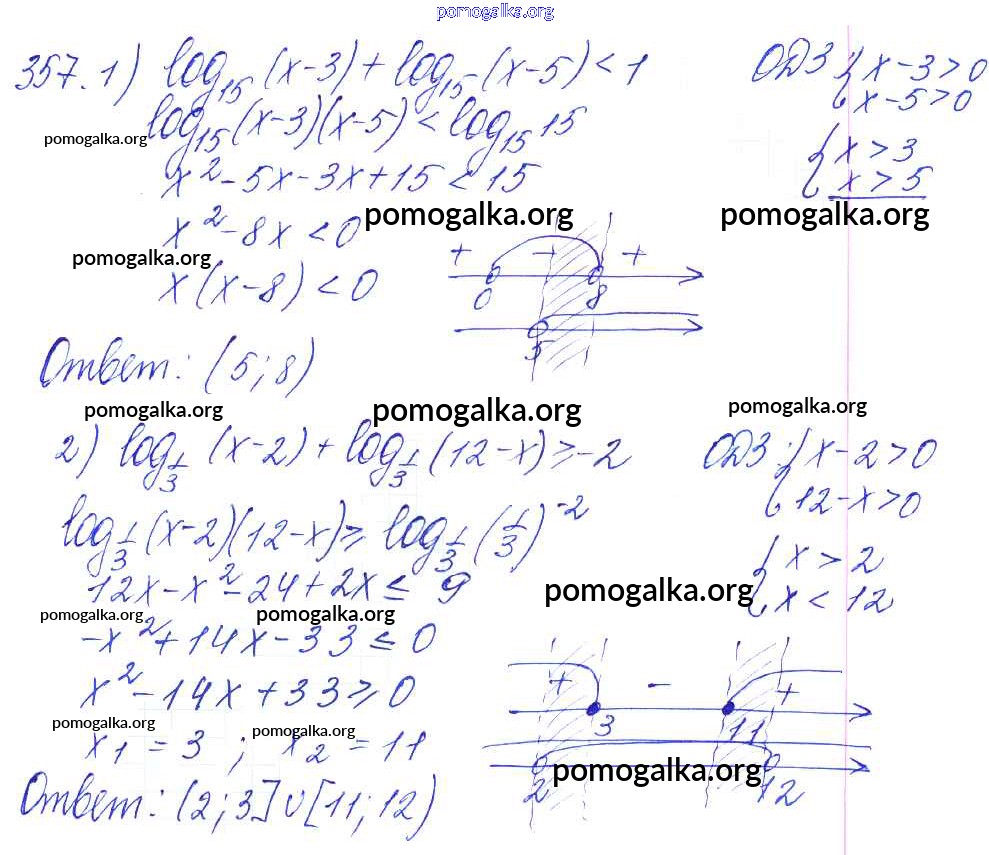 pomogalka.org
357. 1) log₁₅ (x-3) + log₁₅ (x-5) < 1
ОДЗ { x-3>0
x-5>0
log₁₅ (x-3)(x-5) < log₁₅ 15
pomogalka.org
{ x>3
x>5
x² - 5x - 3x + 15 < 15
pomogalka.org
pomogalka.org
x² - 8x < 0
pomogalka.org
+ - +
x(x-8) < 0
0 8
5
Ответ: (5; 8)
pomogalka.org
pomogalka.org
pomogalka.org
2) log_{1/3} (x-2) + log_{1/3} (12-x) ≥ -2
ОДЗ: { x-2>0
12-x>0
log_{1/3} (x-2)(12-x) ≥ log_{1/3} (1/3)⁻²
{ x>2
x<12
12x - x² - 24 + 2x ≤ 9
pomogalka.org
pomogalka.org
pomogalka.org
-x² + 14x - 33 ≤ 0
x² - 14x + 33 ≥ 0
+ - +
3 11
pomogalka.org
pomogalka.org
x₁ = 3 ; x₂ = 11
pomogalka.org
2 12
Ответ: (2; 3] ∪ [11; 12)